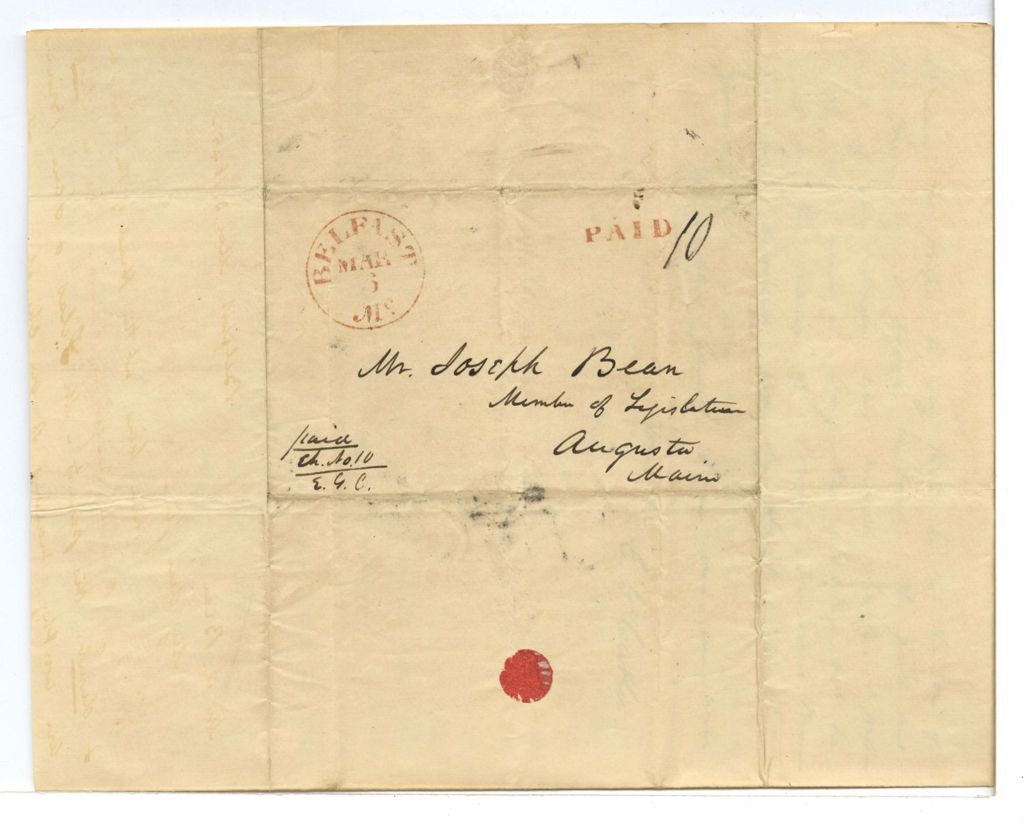 BELFAST
MAR
6
Me.
PAID 10
Mr. Joseph Bean
Member of Legislature
Augusta
Maine
paid
Ch. No. 10
E. G. C.